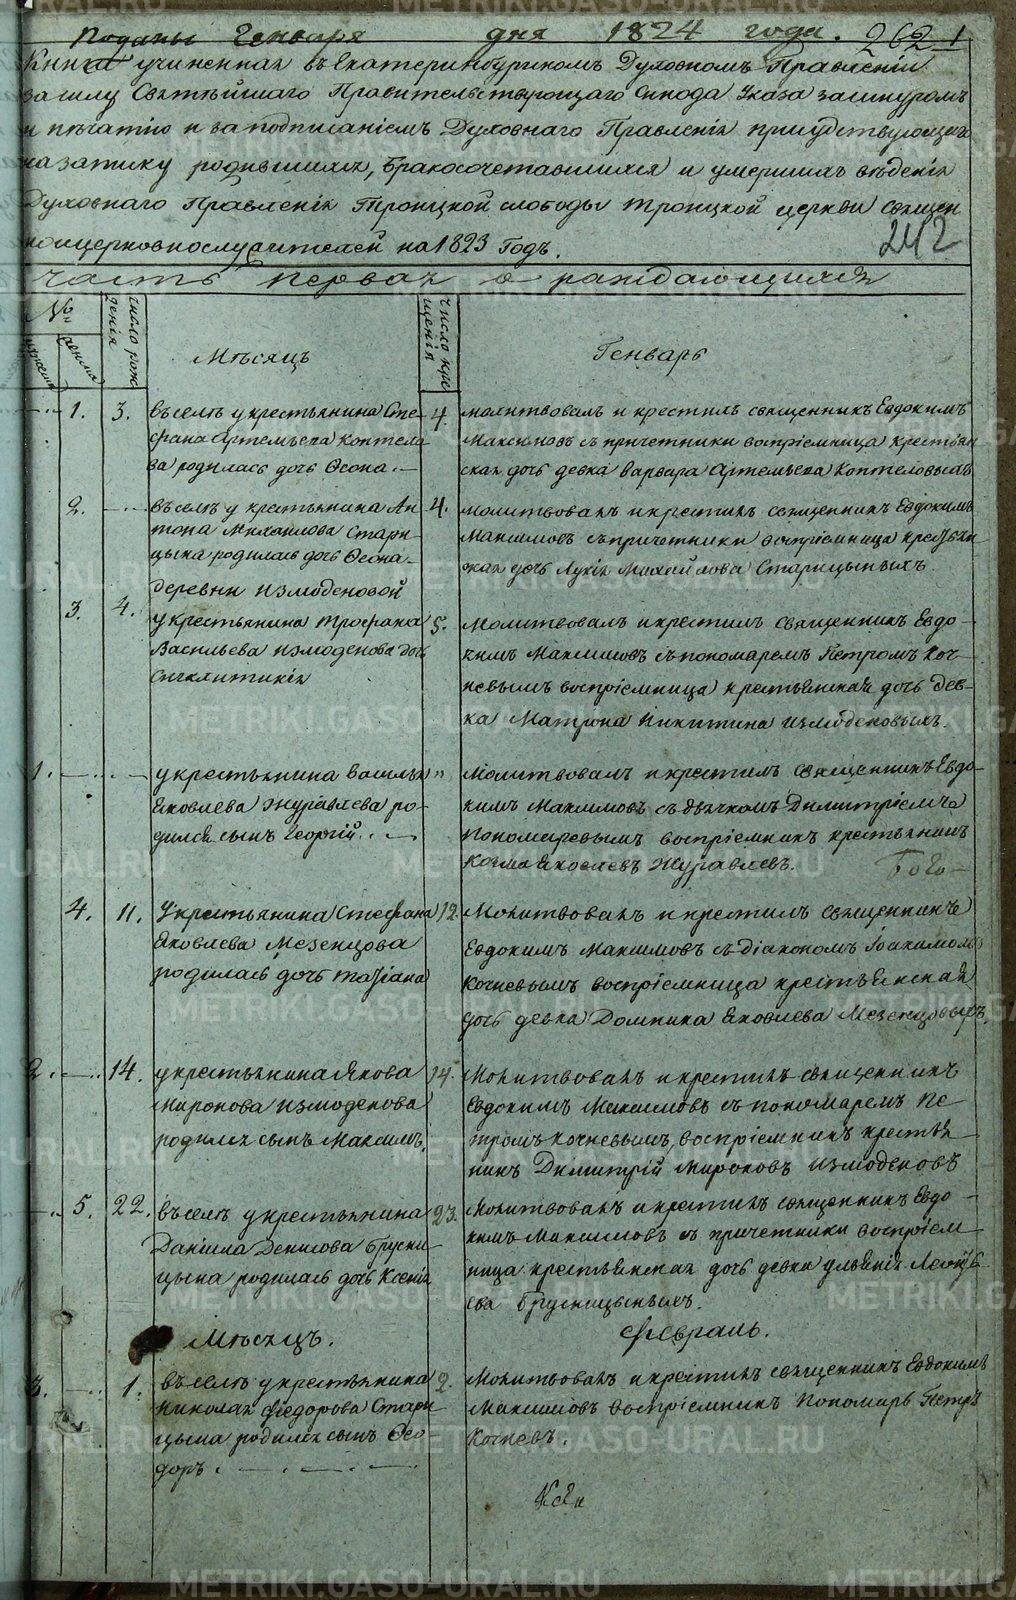 Поданы Генваря дня 1824 года. 262 1
Книга учиненная въ Екатеринбургскомъ Духовномъ Правленiи
засилу Святѣйшаго Правительствующаго Синода Указа зашнуромъ
и печатью и заподписанiемъ Духовнаго Правленiя присудствующихъ
назаписку родившихся, бракосочетавшихся и умершихъ вѣденiя
Духовнаго Правленiя Троицкой слободы Троицкой церкви Священ
ноицерковнослужителей на 1823 Годъ.
242
Часть первая о раждающихся
№
мужеска
женска
число рож
денiя
Мѣсяцъ
число кре
щенiя
Генварь
1. 3. въселѣ укрестьянина Сте
фана Артемьева Коптело
ва родилась дочь Ѳеона.
4. молитвовалъ и крестилъ священникъ Евдокимъ
Максимовъ съ причетники воспрiемница крестьян
ская дочь девка Варвара Артемьева Коптеловыхъ
2. въселѣ у крестьянина Ан
тона Михаилова Стари
цына родилась дочь Ѳеона
4. молитвовалъ икрестилъ священникъ Евдокимъ
Максимовъ съ причетники воспрiемница крестьян
ская дочь Лукiя Михайлова Старицыныхъ.
3. 4. деревни Измоденовой
укрестьянина Трофима
Васильева Измоденова дочь
Сигклитикiя
5. Молитвовалъ икрестилъ священникъ Евдо
кимъ Максимовъ съ пономаремъ Петромъ Коч
невымъ воспрiемница крестьянская дочь дев
ка Матрона Никитина Измоденовыхъ.
1. укрестьянина Василья
Яковлева Журавлева ро
дился сынъ Георгiй.
" Молитвовалъ икрестилъ священникъ Евдо
кимъ Максимовъ съ дьячкомъ Димитрiемъ
Пономаревымъ воспрiемникъ крестьянинъ
Козма Яковлевъ Журавлевъ.
Бого
4. 11. Укрестьянина Стефана
Яковлева Мезенцова
родилась дочь Татiана
12. Молитвовалъ и крестилъ священникъ
Евдокимъ Максимовъ съ дiакономъ Iоакимомъ
Кочневымъ воспрiемница крестьянская
дочь девка Домника Яковлева Мезенцовыхъ.
2. 14. укрестьянина Якова
Миронова Измоденова
родился сынъ Максимъ.
14. Молитвовалъ икрестилъ священникъ
Евдокимъ Максимовъ съ пономаремъ Пе
тромъ Кочневымъ, воспрiемникъ крестья
нинъ Димитрiй Мироновъ Измоденовъ
5. 22. въселѣ укрестьянина
Данiила Денисова Брусни
цына родилась дочь Ксенiя
23. Молитвовалъ икрестилъ священникъ Евдо
кимъ Максимовъ съ причетники воспрiем
ница крестьянская дочь девка Улянiя Леонтье
ва Брусницыныхъ.
Мѣсяцъ. Февраль.
3. 1. въселѣ укрестьянина
Николая Фiедорова Стари
цына родился сынъ Ѳео
доръ.
2. Молитвовалъ икрестилъ священникъ Евдокимъ
Максимовъ воспрiемникъ Пономарь Петръ
Кочневъ.